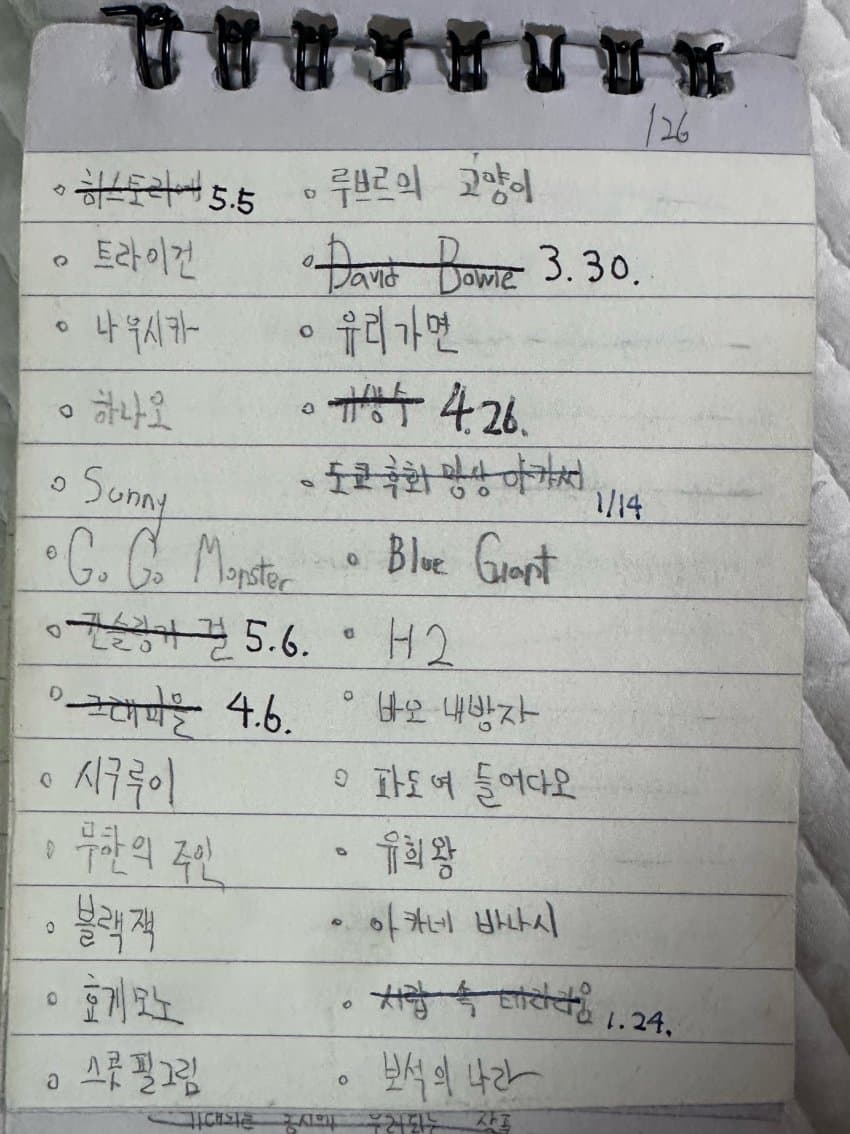 126
히스토리에 5.5
루브르의 고양이
트라이건
David Bowie 3.30.
나우시카
유리가면
하나오
기생수 4.26.
Sunny
도쿄 후회 망상 아카서
1/14
G. G. Monster
Blue Giant
건슬링거 걸 5.6.
H2
크래피올 4.6.
바오 내방자
시구루이
파도여 들어다오
무한의 주인
유희왕
블랙잭
아카네 바나시
효게모노
서랍 속 테라리움
1.24.
스콧 필그림
보석의 나라